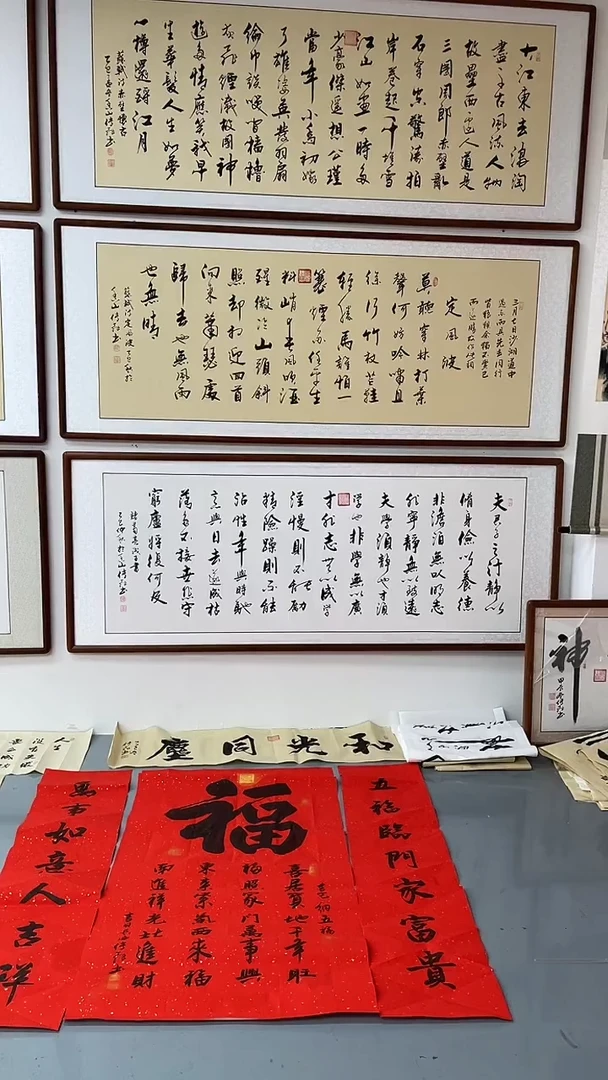 大江東去浪淘
盡千古風流人物
故壘西邊人道是
三國周郎赤壁亂
石穿空驚濤拍
岸卷起千堆雪
江山如畫一時多
少豪傑遙想公瑾
當年小喬初嫁
了雄姿英發羽扇
綸巾談笑間檣櫓
灰飛煙滅故國神
遊多情應笑我早
生華髮人生如夢
一樽還酹江月
蘇軾詞赤壁懷古
三月七日沙湖道中
遇雨雨具先去同行
皆狼狽余獨不覺已
而遂晴故作此詞
定風波
莫聽穿林打葉
聲何妨吟嘯且
徐行竹杖芒鞋
輕勝馬誰怕一
蓑煙雨任平生
料峭春風吹酒
醒微冷山頭斜
照卻相迎回首
向來蕭瑟處
歸去也無風雨
也無晴
蘇軾詞定風波乙巳秋於
夫君子之行靜以
脩身儉以養德
非澹泊無以明志
非寧靜無以致遠
夫學須靜也才須
學也非學無以廣
才非志無以成學
淫慢則不能勵
精險躁則不能
治性年與時馳
意與日去遂成枯
落多不接世悲守
窮廬將復何及
諸葛亮誡子書
神
和光同塵
五福臨門家富貴
福
喜居寶地千年旺
福照家門萬事興
東來紫氣西來福
南進祥光北進財
萬事如意人吉祥
人生